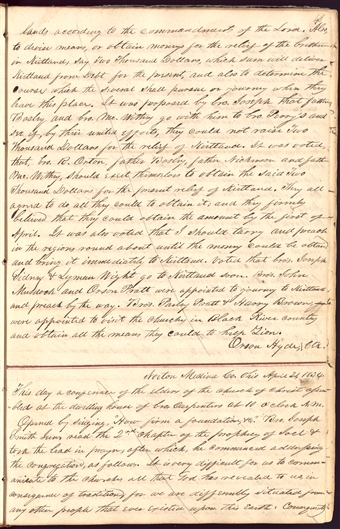 lands according to the commandment of the Lord. Also,
to devise means, or obtain moneys for the relief of the brethren
in Kirtland, say Two Thousand Dollars, which sum will deliver
Kirtland from Debt for the present, and also to determine the
course which the several shall pursue or journey when they
leave this place. It was proposed by bro. Joseph that father
Bosley and bro. Mc Withy go with him to bro. Perry's and
see if, by their united efforts, they could not raise Two
Thousand Dollars for the relief of Kirtland. It was voted,
that bro. R. Orton, father Bosley, father Nickerson and father
Mc. Withy, should exert themselves to obtain the said Two
Thousand Dollars for the present relief of Kirtland. They all
agreed to do all they could to obtain it, and they firmly
believed that they could obtain the amount by the first of
April. It was also voted that I should tarry and preach
in the regions round about until the money could be obtained
and bring it immediately to Kirtland. Voted that bro. Joseph
Sidney & Lyman Wight go to Kirtland soon. Bros. John
Murdock and Orson Pratt were appointed to journey to Kirtland
and preach by the way. Bros. Parley Pratt & Henry Brown
were appointed to visit the churches in Black River country
and obtain all the means they could to help Zion.
Orson Hyde, Clk.
Norton Medina Co. Ohio April 21 1834
This day a conference of the elders of the church of Christ assem-
bled at the dwelling house of bro. Carpenters at 10 o'clock A.M.
Opened by singing, How firm a foundation, &c. Bro. Joseph
Smith Junr read the 2nd chapter of the prophecy of Joel &
took the lead in prayer, after which, he commenced addressing
the congregation, as follows: It is very difficult for us to commu-
nicate to the churches all that God has revealed to us in
consequence of tradition; for we are differently situated from
any other people that ever existed upon this Earth. Consequently